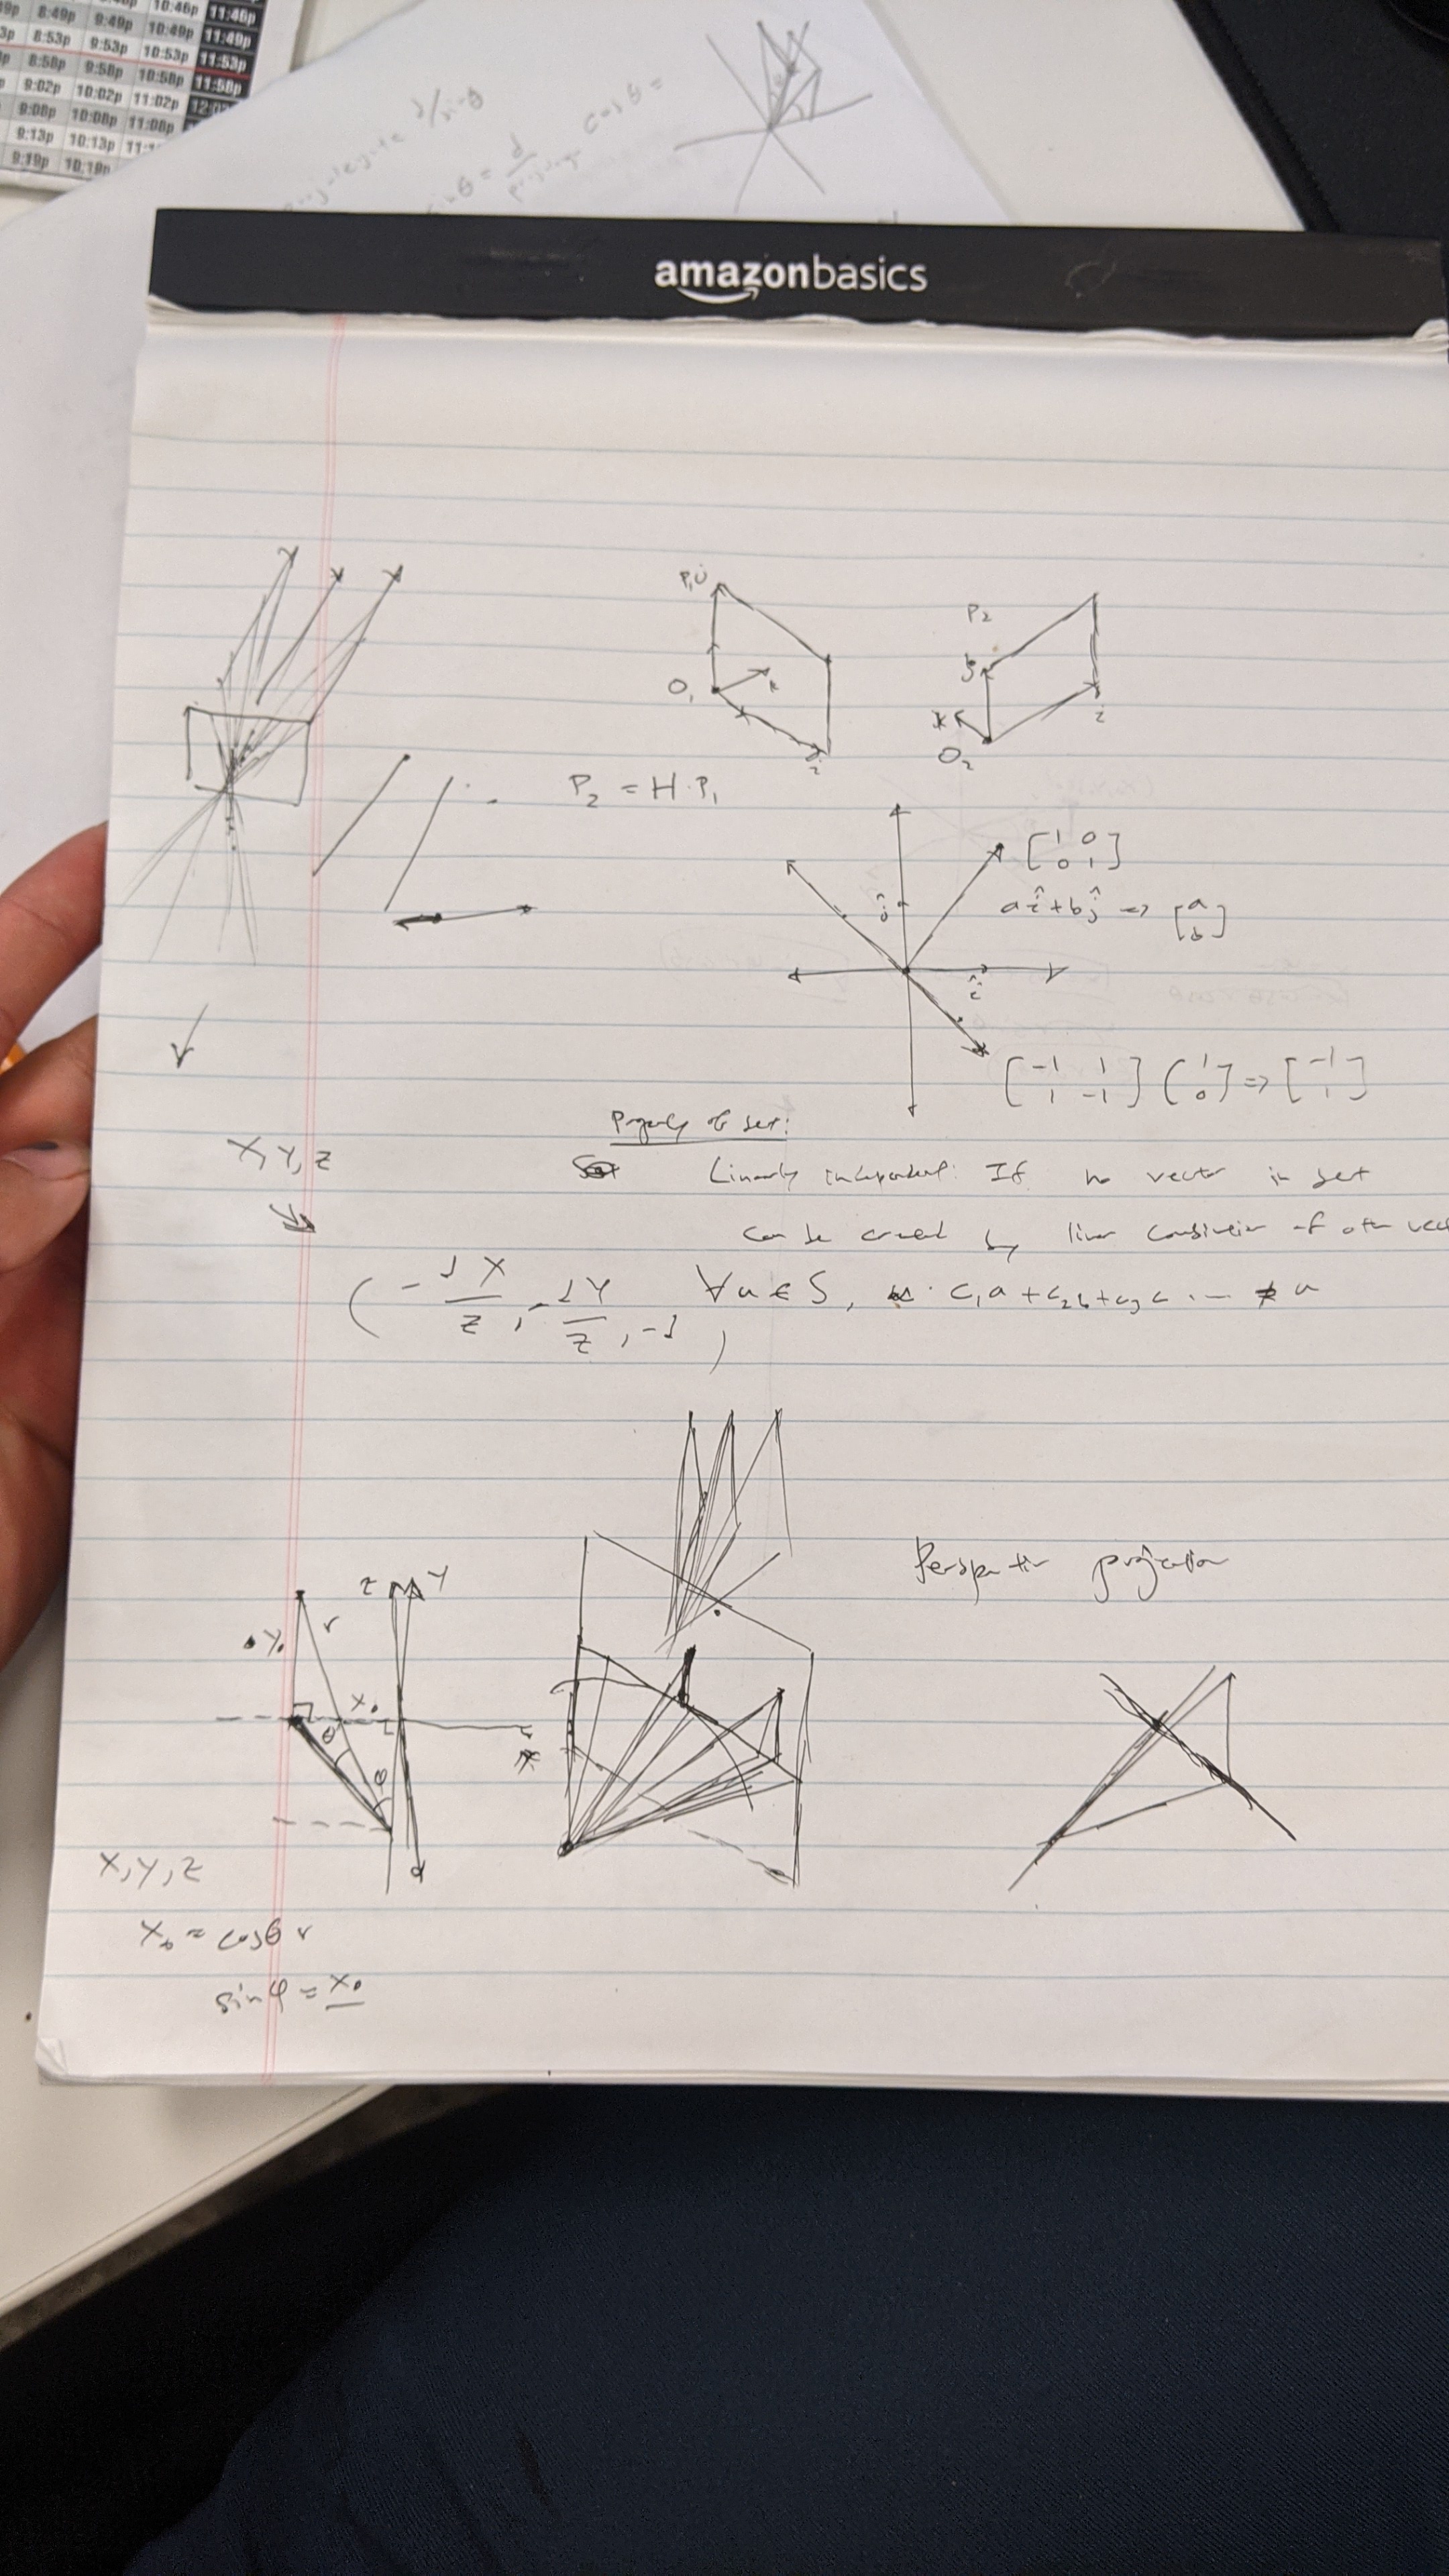 10:46p 11:46p
8:49p 9:49p 10:49p 11:49p
8:53p 9:53p 10:53p 11:53p
8:58p 9:58p 10:58p 11:58p
9:02p 10:02p 11:02p
9:08p 10:08p 11:08p
9:13p 10:13p
9:19p 10:19p
d/sinθ
cosθ =
sinθ = d/
amazonbasics
P₁ j
O₁ k
i
P₂
j
k
i
O₂
P₂ = H·P₁
[1 0
0 1]
ĵ
aî + bĵ => [a
b]
î
[-1 1
1 -1] [1
0] => [-1
1]
Property of set:
X, Y, Z
Linearly independent: If no vector in set
can be created by linear combination of other vec
(-dX/Z, -dY/Z, -d)
∀a ∈ S, c₁a + c₂b + c₃c ... ≠ a
Perspective projection
Z Y
r
Y₀
X₀
θ
φ
X
d
X, Y, Z
X₀ = cosθ r
sinφ = X₀